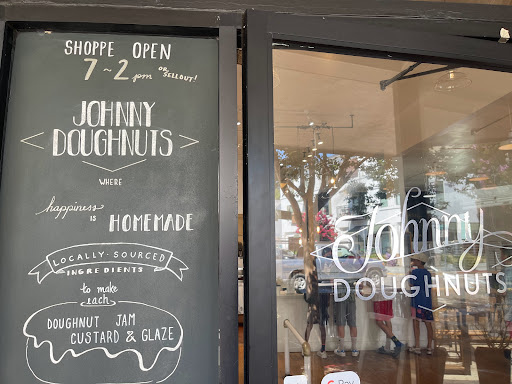 SHOPPE OPEN
7~2pm OR SELLOUT!
JOHNNY
DOUGHNUTS
WHERE
happiness
IS HOMEMADE
LOCALLY-SOURCED
INGREDIENTS
to make
each
DOUGHNUT JAM
CUSTARD & GLAZE
Johnny
DOUGHNUTS
G Pay